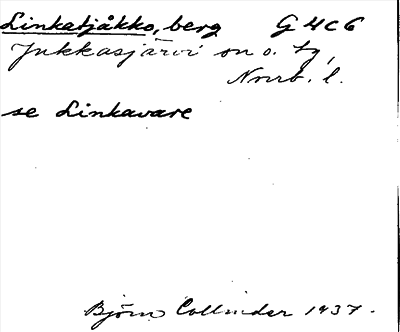 Linkatjåkko, berg G 4 C 6
Jukkasjärvi sn o. tg,
Norrb. l.
se Linkavare
Björn Collinder 1937.